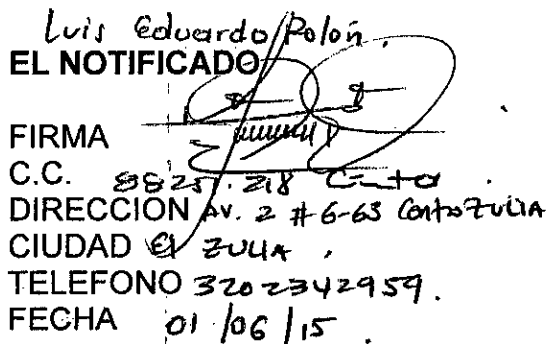 Luis Eduardo Polón.
EL NOTIFICADO
FIRMA
C.C. 88251.218 Cúcuta.
DIRECCION AV. 2 # 6-63 Centro ZULIA
CIUDAD El ZULIA.
TELEFONO 3202342959.
FECHA 01/06/15.